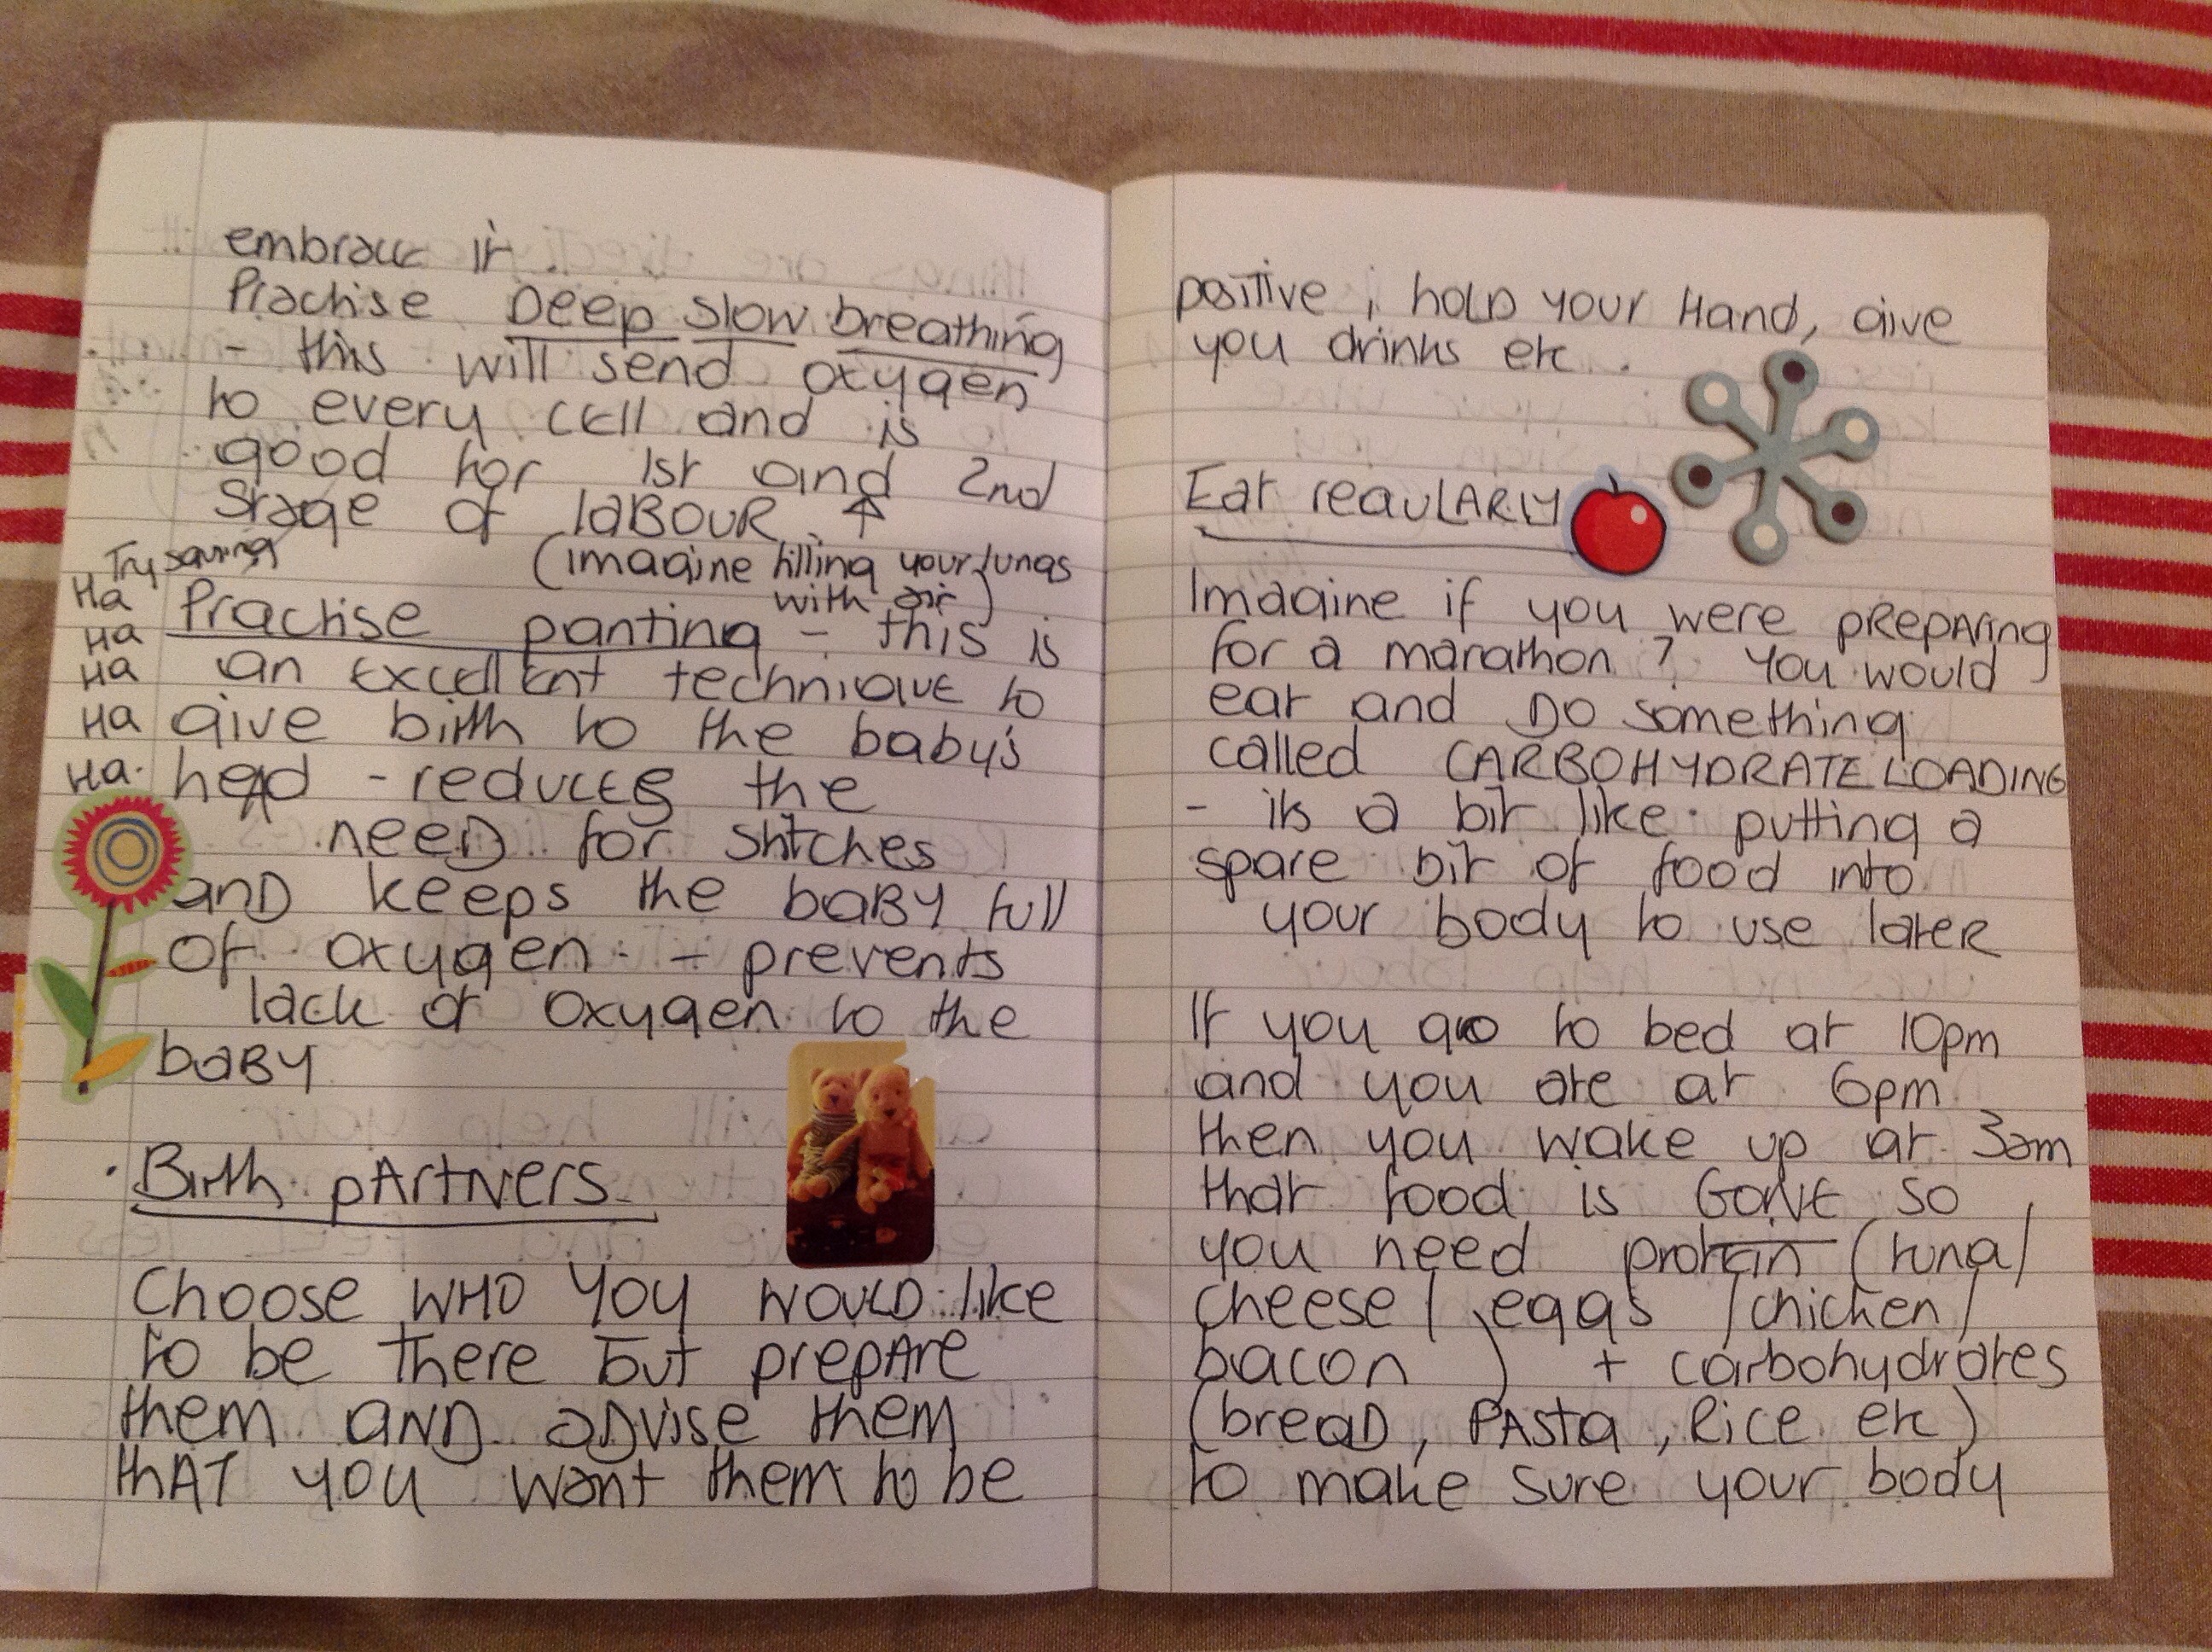 embrace it.
Practise Deep slow breathing
- this will send oxygen
to every cell and is
good for 1st and 2nd
stage of laBOUR ↑
(imagine filling your lungs
with air)
Try saying
Ha
Ha
Ha
Ha
Ha.
Practise panting - this is
an excellent technique to
give birth to the baby's
head - reduces the
need for stitches
and keeps the baBY full
of oxygen. - prevents
lack of oxygen to the
baBY
. Birth pArtNers
Choose WHO YOU WOULD like
to be There but prepAre
them AND aDvise them
thAT YOU want them to be
positive, hold your Hand, give
you drinks etc.
Eat reguLARLY
Imagine if you were pRepARing
for a marathon? You would
eat and Do something
called CARBOHYDRATE LOADING
- its a bit like putting a
spare bit of food into
your body to use lateR
If you go to bed at 10pm
and you ate at 6pm
then you wake up at 3am
that food is GONE so
you need protein (tuna/
cheese/ eggs /chicken/
bacon) + carbohydrates
(breaD, PAsta, Rice etc)
to make sure your body